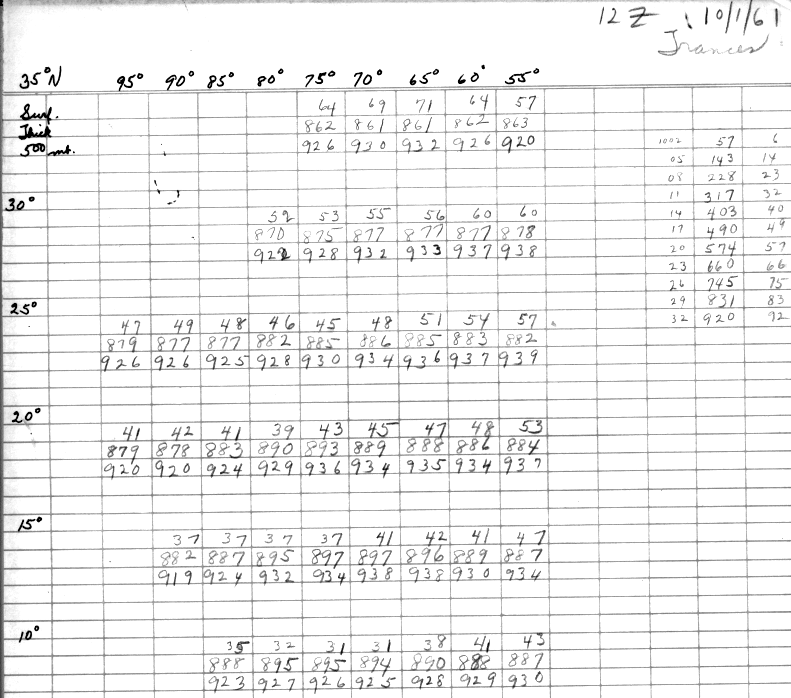 12 Z 10/1/61
Frances
35°N 95° 90° 85° 80° 75° 70° 65° 60° 55°
Surf. 64 69 71 64 57
Thick 862 861 861 862 863
500 mb. 926 930 932 926 920
1002 57 6
05 143 14
08 228 23
11 317 32
14 403 40
17 490 49
20 574 57
23 660 66
26 745 75
29 831 83
32 920 92
30°
52 53 55 56 60 60
870 875 877 877 877 878
922 928 932 933 937 938
25°
47 49 48 46 45 48 51 54 57
879 877 877 882 885 886 885 883 882
926 926 925 928 930 934 936 937 939
20°
41 42 41 39 43 45 47 48 53
879 878 883 890 893 889 888 886 884
920 920 924 929 936 934 935 934 937
15°
37 37 37 37 41 42 41 47
882 887 895 897 897 896 889 887
919 924 932 934 938 938 930 934
10°
35 32 31 31 38 41 43
888 895 895 894 890 888 887
923 927 926 925 928 929 930